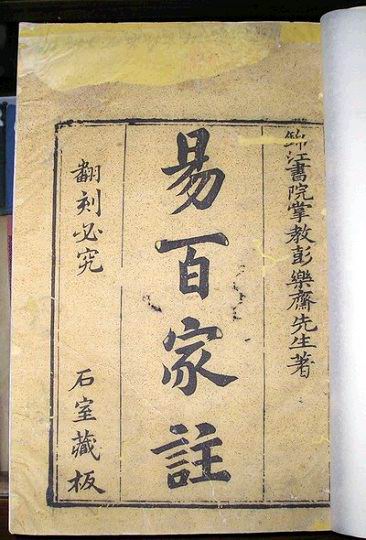 錦江書院掌教彭樂齋先生著
易百家註
翻刻必究
石室藏板